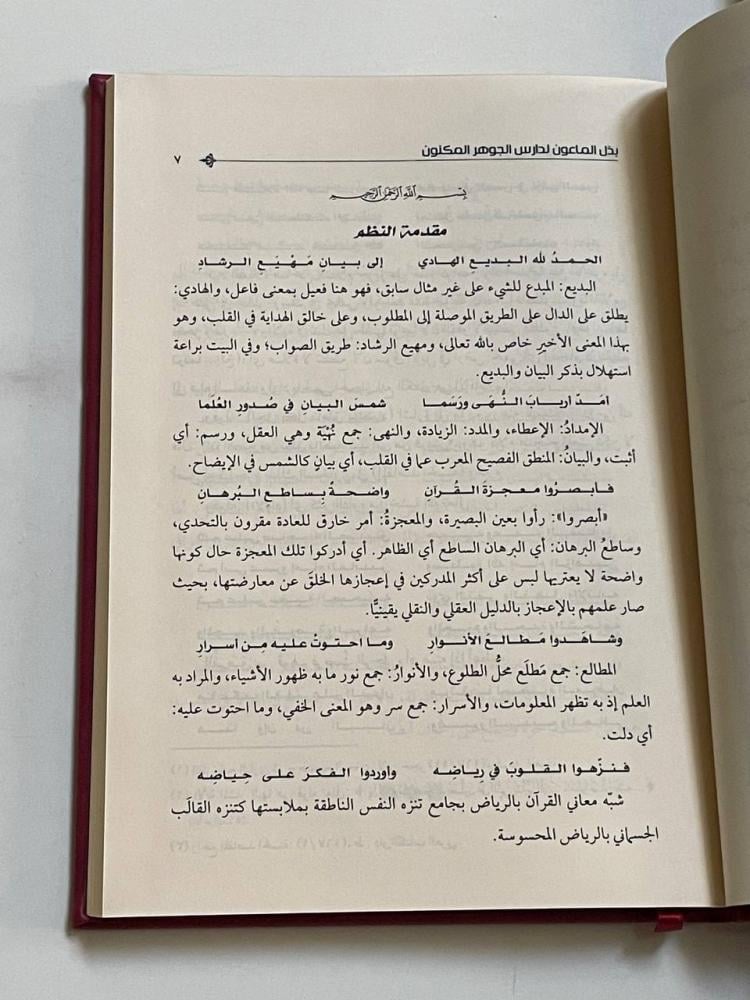 بذل الماعون لدارس الجوهر المكنون ٧
بسم الله الرحمن الرحيم
مقدمة النظم
الحمدُ لله البديعِ الهادي إلى بيانِ مَهْيَعِ الرشادِ
البديع: المبدع للشيء على غير مثال سابق، فهو هنا فعيل بمعنى فاعل، والهادي:
يطلق على الدال على الطريق الموصلة إلى المطلوب، وعلى خالق الهداية في القلب، وهو
بهذا المعنى الأخيرِ خاص بالله تعالى، ومهيع الرشاد: طريق الصواب؛ وفي البيت براعة
استهلال بذكر البيان والبديع.
امَدّ اربابَ النُّهَى ورَسَما شمسَ البيانِ في صُدورِ العُلَما
الإمدادُ: الإعطاء، والمدد: الزيادة، والنهى: جمع نُهْيَة وهي العقل، ورسم: أي
أثبت، والبيانُ: المنطق الفصيح المعرب عما في القلب، أي بيانٍ كالشمس في الإيضاح.
فابصرُوا معجزةَ القُرآنِ واضحةً بِساطعِ البُرهانِ
«أبصروا»: رأوا بعين البصيرة، والمعجزةُ: أمر خارق للعادة مقرون بالتحدي،
وساطعُ البرهان: أي البرهان الساطع أي الظاهر. أي أدركوا تلك المعجزة حال كونها
واضحة لا يعتريها لبس على أكثر المدركين في إعجازها الخلقَ عن معارضتها، بحيث
صار علمهم بالإعجاز بالدليل العقلي والنقلي يقينيًّا.
وشاهَدوا مَطالعَ الأنوارِ وما احتوتْ عليه مِن اسرارِ
المطالع: جمع مَطلَع محلُّ الطلوع، والأنوارُ: جمع نور ما به ظهور الأشياء، والمراد به
العلم إذ به تظهر المعلومات، والأسرار: جمع سر وهو المعنى الخفي، وما احتوت عليه:
أي دلت.
فنزّهوا القلوبَ في رِياضِه واوردوا الفكرَ على حِياضِه
شبّه معاني القرآن بالرياض بجامع تنزه النفس الناطقة بملابستها كتنزه القالَب
الجسماني بالرياض المحسوسة.